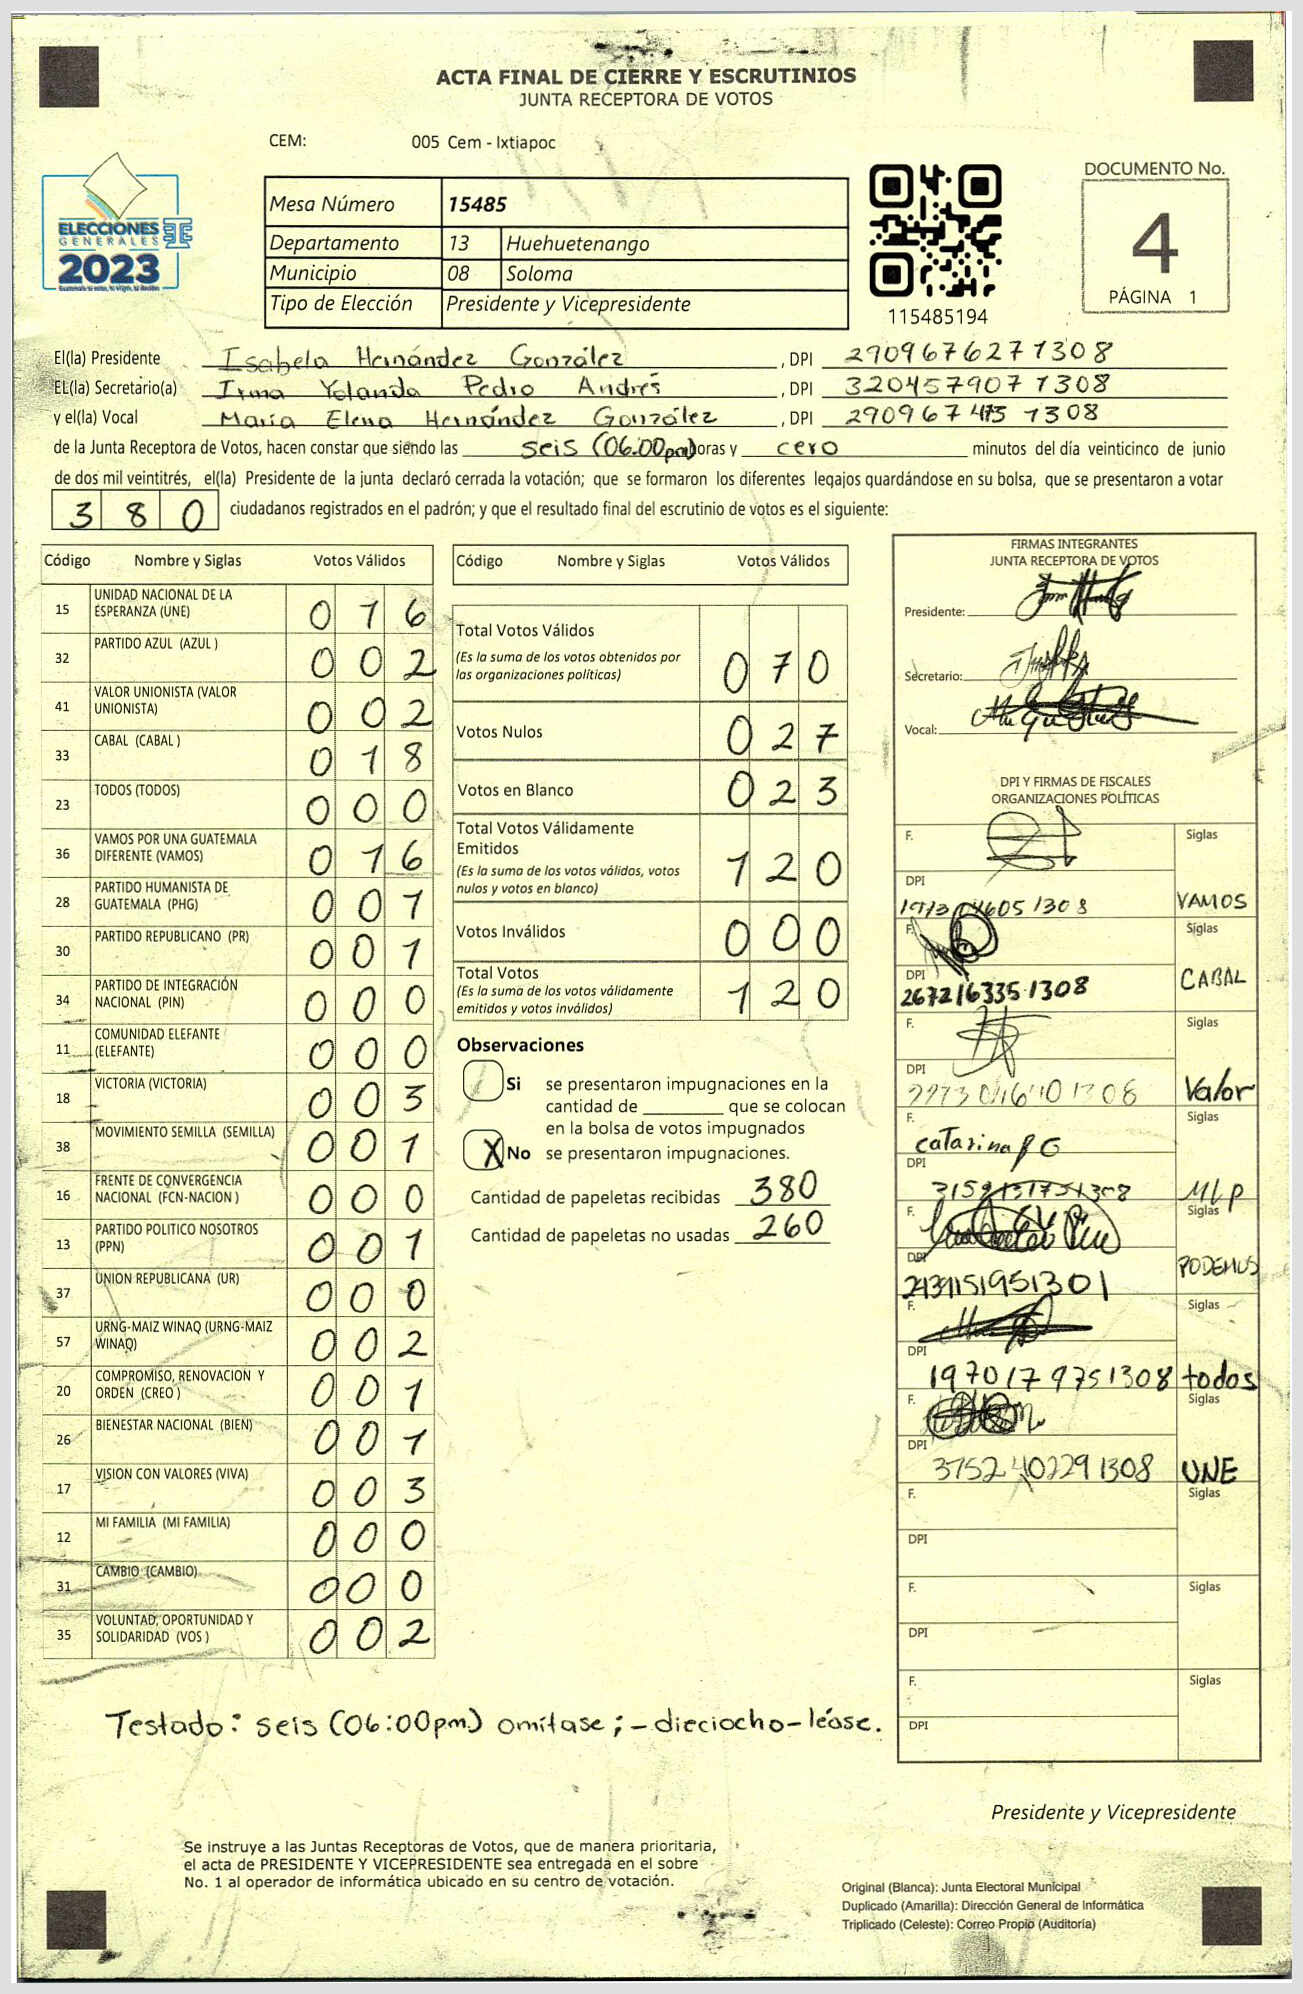 ACTA FINAL DE CIERRE Y ESCRUTINIOS
JUNTA RECEPTORA DE VOTOS
CEM: 005 Cem - Ixtiapoc
ELECCIONES
GENERALES
2023
Mesa Número 15485
Departamento 13 Huehuetenango
Municipio 08 Soloma
Tipo de Elección Presidente y Vicepresidente
115485194
DOCUMENTO No.
4
PÁGINA 1
El(la) Presidente Isabela Hernández González , DPI 2909676271308
EL(la) Secretario(a) Irma Yolanda Pedro Andrés , DPI 3204579071308
y el(la) Vocal María Elena Hernández González , DPI 290967 1308
de la Junta Receptora de Votos, hacen constar que siendo las seis (06:00pm) horas y cero minutos del día veinticinco de junio
de dos mil veintitrés, el(la) Presidente de la junta declaró cerrada la votación; que se formaron los diferentes legajos guardándose en su bolsa, que se presentaron a votar
380 ciudadanos registrados en el padrón; y que el resultado final del escrutinio de votos es el siguiente:
Código Nombre y Siglas Votos Válidos
15 UNIDAD NACIONAL DE LA ESPERANZA (UNE) 016
32 PARTIDO AZUL (AZUL ) 002
41 VALOR UNIONISTA (VALOR UNIONISTA) 002
33 CABAL (CABAL ) 018
23 TODOS (TODOS) 000
36 VAMOS POR UNA GUATEMALA DIFERENTE (VAMOS) 016
28 PARTIDO HUMANISTA DE GUATEMALA (PHG) 001
30 PARTIDO REPUBLICANO (PR) 001
34 PARTIDO DE INTEGRACIÓN NACIONAL (PIN) 000
11 COMUNIDAD ELEFANTE (ELEFANTE) 000
18 VICTORIA (VICTORIA) 003
38 MOVIMIENTO SEMILLA (SEMILLA) 001
16 FRENTE DE CONVERGENCIA NACIONAL (FCN-NACION ) 000
13 PARTIDO POLITICO NOSOTROS (PPN) 001
37 UNION REPUBLICANA (UR) 000
57 URNG-MAIZ WINAQ (URNG-MAIZ WINAQ) 002
20 COMPROMISO, RENOVACION Y ORDEN (CREO ) 001
26 BIENESTAR NACIONAL (BIEN) 001
17 VISION CON VALORES (VIVA) 003
12 MI FAMILIA (MI FAMILIA) 000
31 CAMBIO (CAMBIO) 000
35 VOLUNTAD, OPORTUNIDAD Y SOLIDARIDAD (VOS ) 002
Código Nombre y Siglas Votos Válidos
Total Votos Válidos
(Es la suma de los votos obtenidos por
las organizaciones políticas) 070
Votos Nulos 027
Votos en Blanco 023
Total Votos Válidamente
Emitidos
(Es la suma de los votos válidos, votos
nulos y votos en blanco) 120
Votos Inválidos 000
Total Votos
(Es la suma de los votos válidamente
emitidos y votos inválidos) 120
Observaciones
Si se presentaron impugnaciones en la
cantidad de ________ que se colocan
en la bolsa de votos impugnados
X No se presentaron impugnaciones.
Cantidad de papeletas recibidas 380
Cantidad de papeletas no usadas 260
FIRMAS INTEGRANTES
JUNTA RECEPTORA DE VOTOS
Presidente:
Secretario:
Vocal:
DPI Y FIRMAS DE FISCALES
ORGANIZACIONES POLÍTICAS
F. Siglas
DPI
VAMOS
F. Siglas
DPI
2672163351308 CABAL
F. Siglas
DPI
Valor
F. Siglas
Catarina
DPI
3159131751308 MLP
F. Siglas
DPI
PODEMOS
F. Siglas
DPI
1970179751308 todos
F. Siglas
DPI
3752402291308 UNE
F. Siglas
DPI
F. Siglas
DPI
F. Siglas
DPI
Testado: seis (06:00pm) omítase; - dieciocho - léase.
Presidente y Vicepresidente
Se instruye a las Juntas Receptoras de Votos, que de manera prioritaria,
el acta de PRESIDENTE Y VICEPRESIDENTE sea entregada en el sobre
No. 1 al operador de informática ubicado en su centro de votación.
Original (Blanca): Junta Electoral Municipal
Duplicado (Amarilla): Dirección General de Informática
Triplicado (Celeste): Correo Propio (Auditoría)